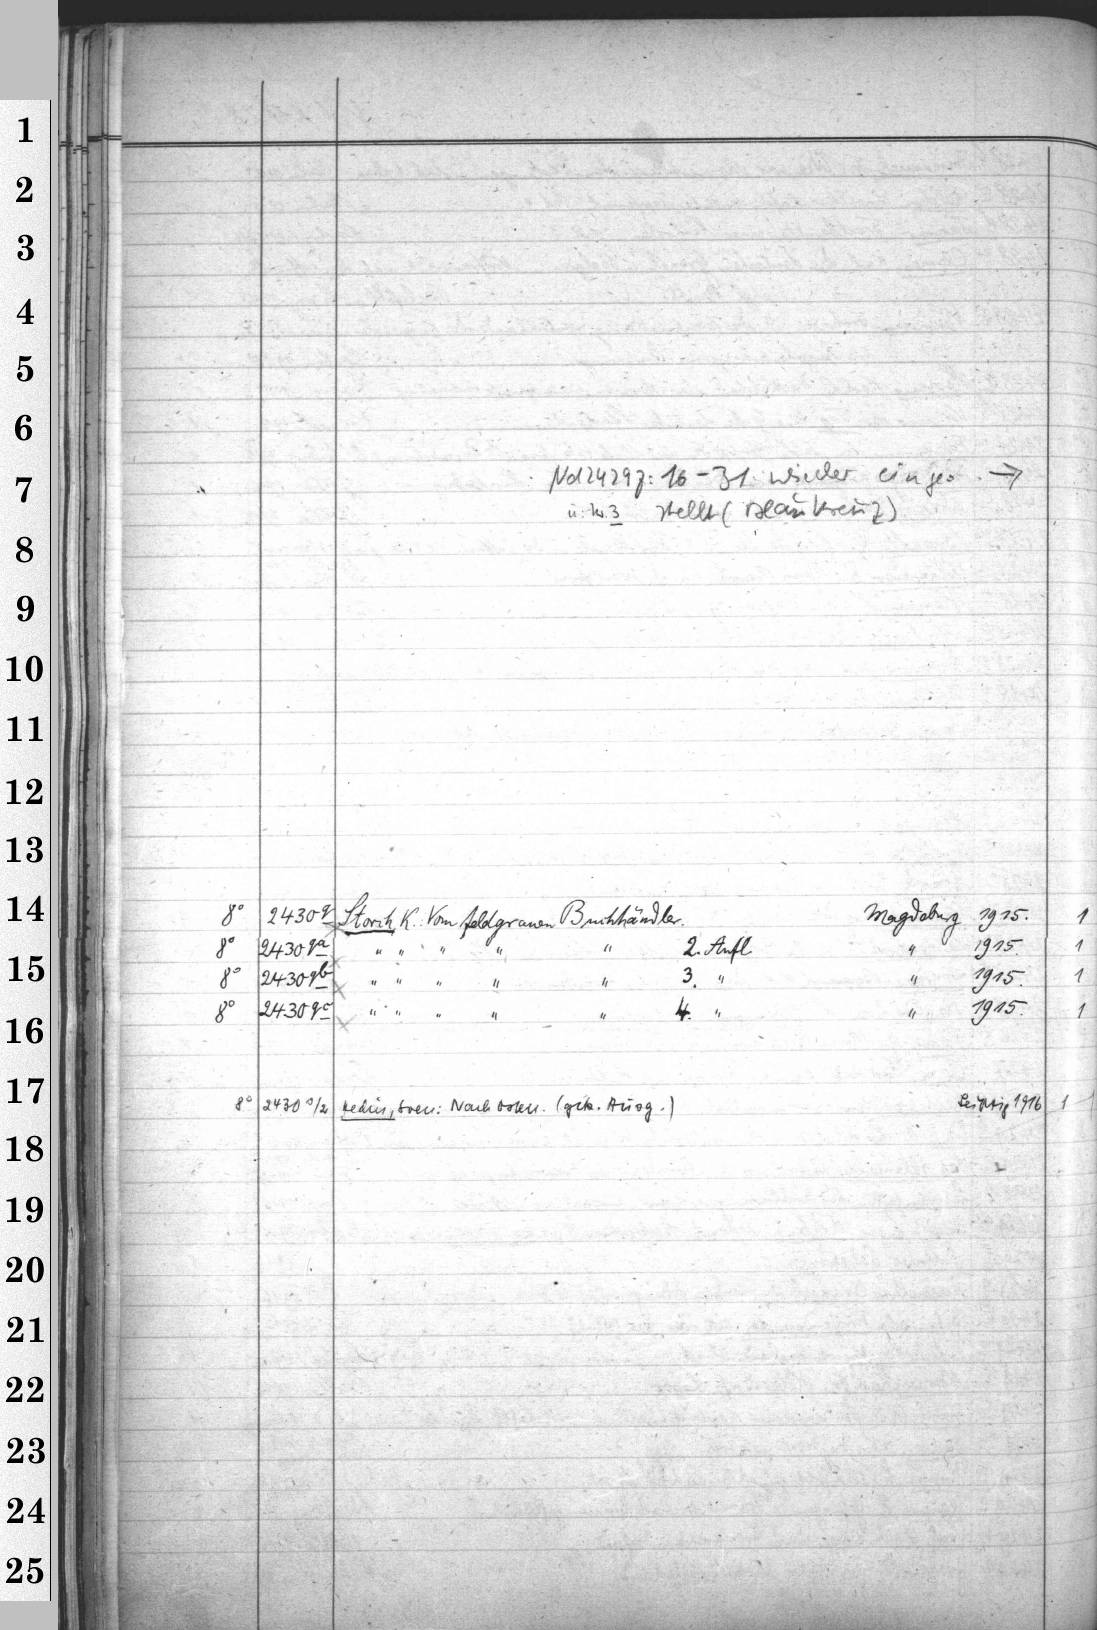 1
2
3
4
5
6
7
: 16-31 wieder einge- →
u. Nr. 3 stellt (Blaukreuz)
8
9
10
11
12
13
14
8° 2430q Storch K.: Vom feldgrauen Buchhändler. Magdeburg 1915. 1
8° 2430qa " " " " " 2. Aufl. " 1915. 1
15
8° 2430qb " " " " " 3. " " 1915. 1
8° 2430qc " " " " " 4. " " 1915. 1
16
17
8° 2430 Hedin, Sven: Nach Osten. (gek. Ausg.) Leipzig 1916 1
18
19
20
21
22
23
24
25